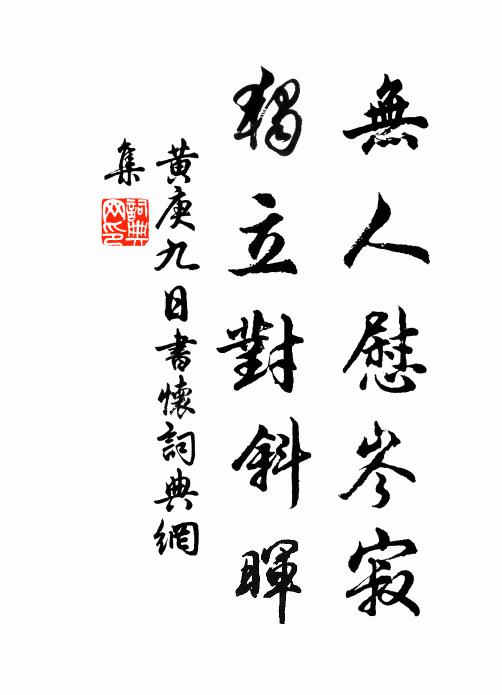 無人慰岑寂
獨立對斜暉
黃庚九日書懷詞典網
集
詞典
网印